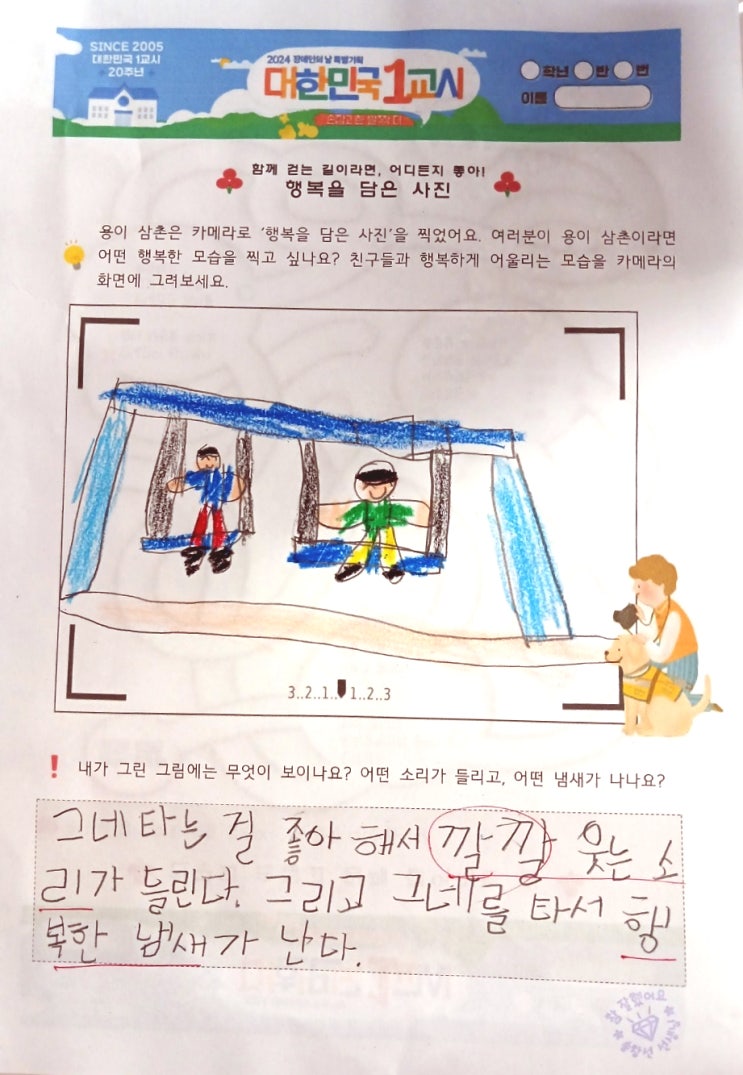 SINCE 2005
대한민국 1교시
20주년
2024 장애인의 날 특별기획
대한민국1교시
학년 반 번
이름
함께 걷는 길이라면, 어디든지 좋아!
행복을 담은 사진
용이 삼촌은 카메라로 '행복을 담은 사진'을 찍었어요. 여러분이 용이 삼촌이라면
어떤 행복한 모습을 찍고 싶나요? 친구들과 행복하게 어울리는 모습을 카메라의
화면에 그려보세요.
3..2..1.. 1..2..3
! 내가 그린 그림에는 무엇이 보이나요? 어떤 소리가 들리고, 어떤 냄새가 나나요?
그네 타는 걸 좋아 해서 깔깔 웃는 소
리가 들린다. 그리고 그네를 타서 행
복한 냄새가 난다.
참 잘했어요
선생님